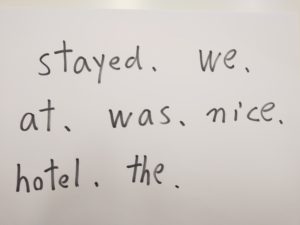 stayed、 we、
at、 was、 nice、
hotel、 the、